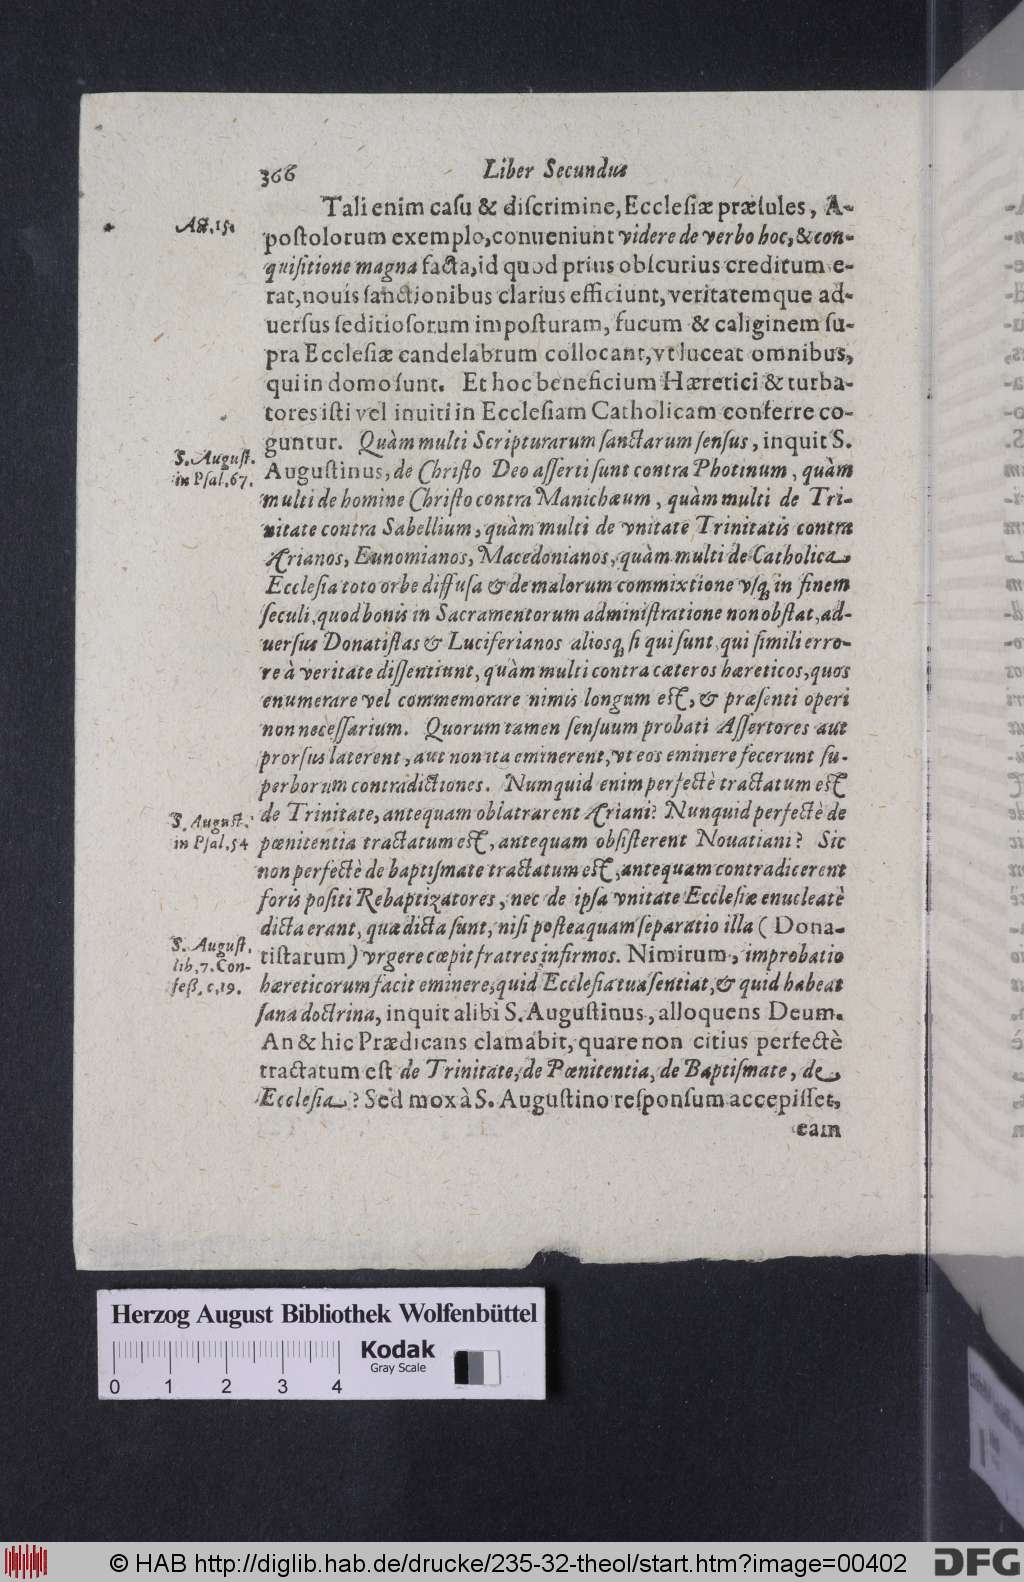 366 Liber Secundus
Tali enim casu & discrimine, Ecclesiæ præsules, A-
Act. 15.
postolorum exemplo, conueniunt videre de verbo hoc, & con-
quisitione magna facta, id quod prius obscurius creditum e-
rat, nouis sanctionibus clarius efficiunt, veritatemque ad-
uersus seditiosorum imposturam, fucum & caliginem su-
pra Ecclesiæ candelabrum collocant, vt luceat omnibus,
qui in domo sunt. Et hoc beneficium Hæretici & turba-
tores isti vel inuiti in Ecclesiam Catholicam conferre co-
guntur. Quàm multi Scripturarum sanctarum sensus, inquit S.
S. August.
in Psal. 67.
Augustinus, de Christo Deo asserti sunt contra Photinum, quàm
multi de homine Christo contra Manichæum, quàm multi de Tri-
nitate contra Sabellium, quàm multi de vnitate Trinitatis contra
Arianos, Eunomianos, Macedonianos, quàm multi de Catholica
Ecclesia toto orbe diffusa & de malorum commixtione vsq, in finem
seculi, quod bonis in Sacramentorum administratione non obstat, ad-
uersus Donatistas & Luciferianos aliosq, si qui sunt, qui simili erro-
re à veritate dissentiunt, quàm multi contra cæteros hæreticos, quos
enumerare vel commemorare nimis longum est, & præsenti operi
non necessarium. Quorum tamen sensuum probati Assertores aut
prorsus laterent, aut non ita eminerent, vt eos eminere fecerunt su-
perborum contradictiones. Numquid enim perfectè tractatum est
de Trinitate, antequam oblatrarent Ariani? Nunquid perfectè de
S. August.
in Psal. 54
pœnitentia tractatum est, antequam obsisterent Nouatiani? Sic
non perfectè de baptismate tractatum est, antequam contradicerent
foris positi Rebaptizatores, nec de ipsa vnitate Ecclesiæ enucleatè
dicta erant, quæ dicta sunt, nisi posteaquam separatio illa (Dona-
S. August.
lib. 7. Con-
feß. c. 19.
tistarum) vrgere cœpit fratres infirmos. Nimirum, improbatio
hæreticorum facit eminere, quid Ecclesia tua sentiat, & quid habeat
sana doctrina, inquit alibi S. Augustinus, alloquens Deum.
An & hic Prædicans clamabit, quare non citius perfectè
tractatum est de Trinitate, de Pœnitentia, de Baptismate, de
Ecclesia? Sed mox à S. Augustino responsum accepisset,
eam
Herzog August Bibliothek Wolfenbüttel
Kodak
Gray Scale
0 1 2 3 4
© HAB http://diglib.hab.de/drucke/235-32-theol/start.htm?image=00402
DFG